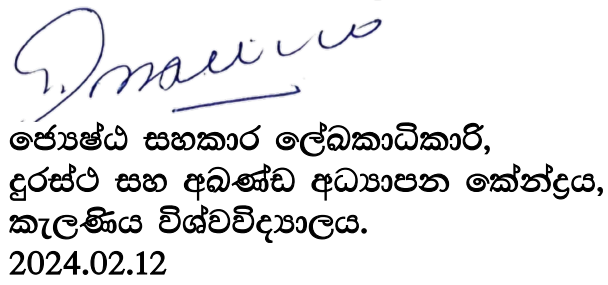 ජ්‍යෙෂ්ඨ සහකාර ලේඛකාධිකාරි,
දුරස්ථ සහ අඛණ්ඩ අධ්‍යාපන කේන්ද්‍රය,
කැලණිය විශ්වවිද්‍යාලය.
2024.02.12